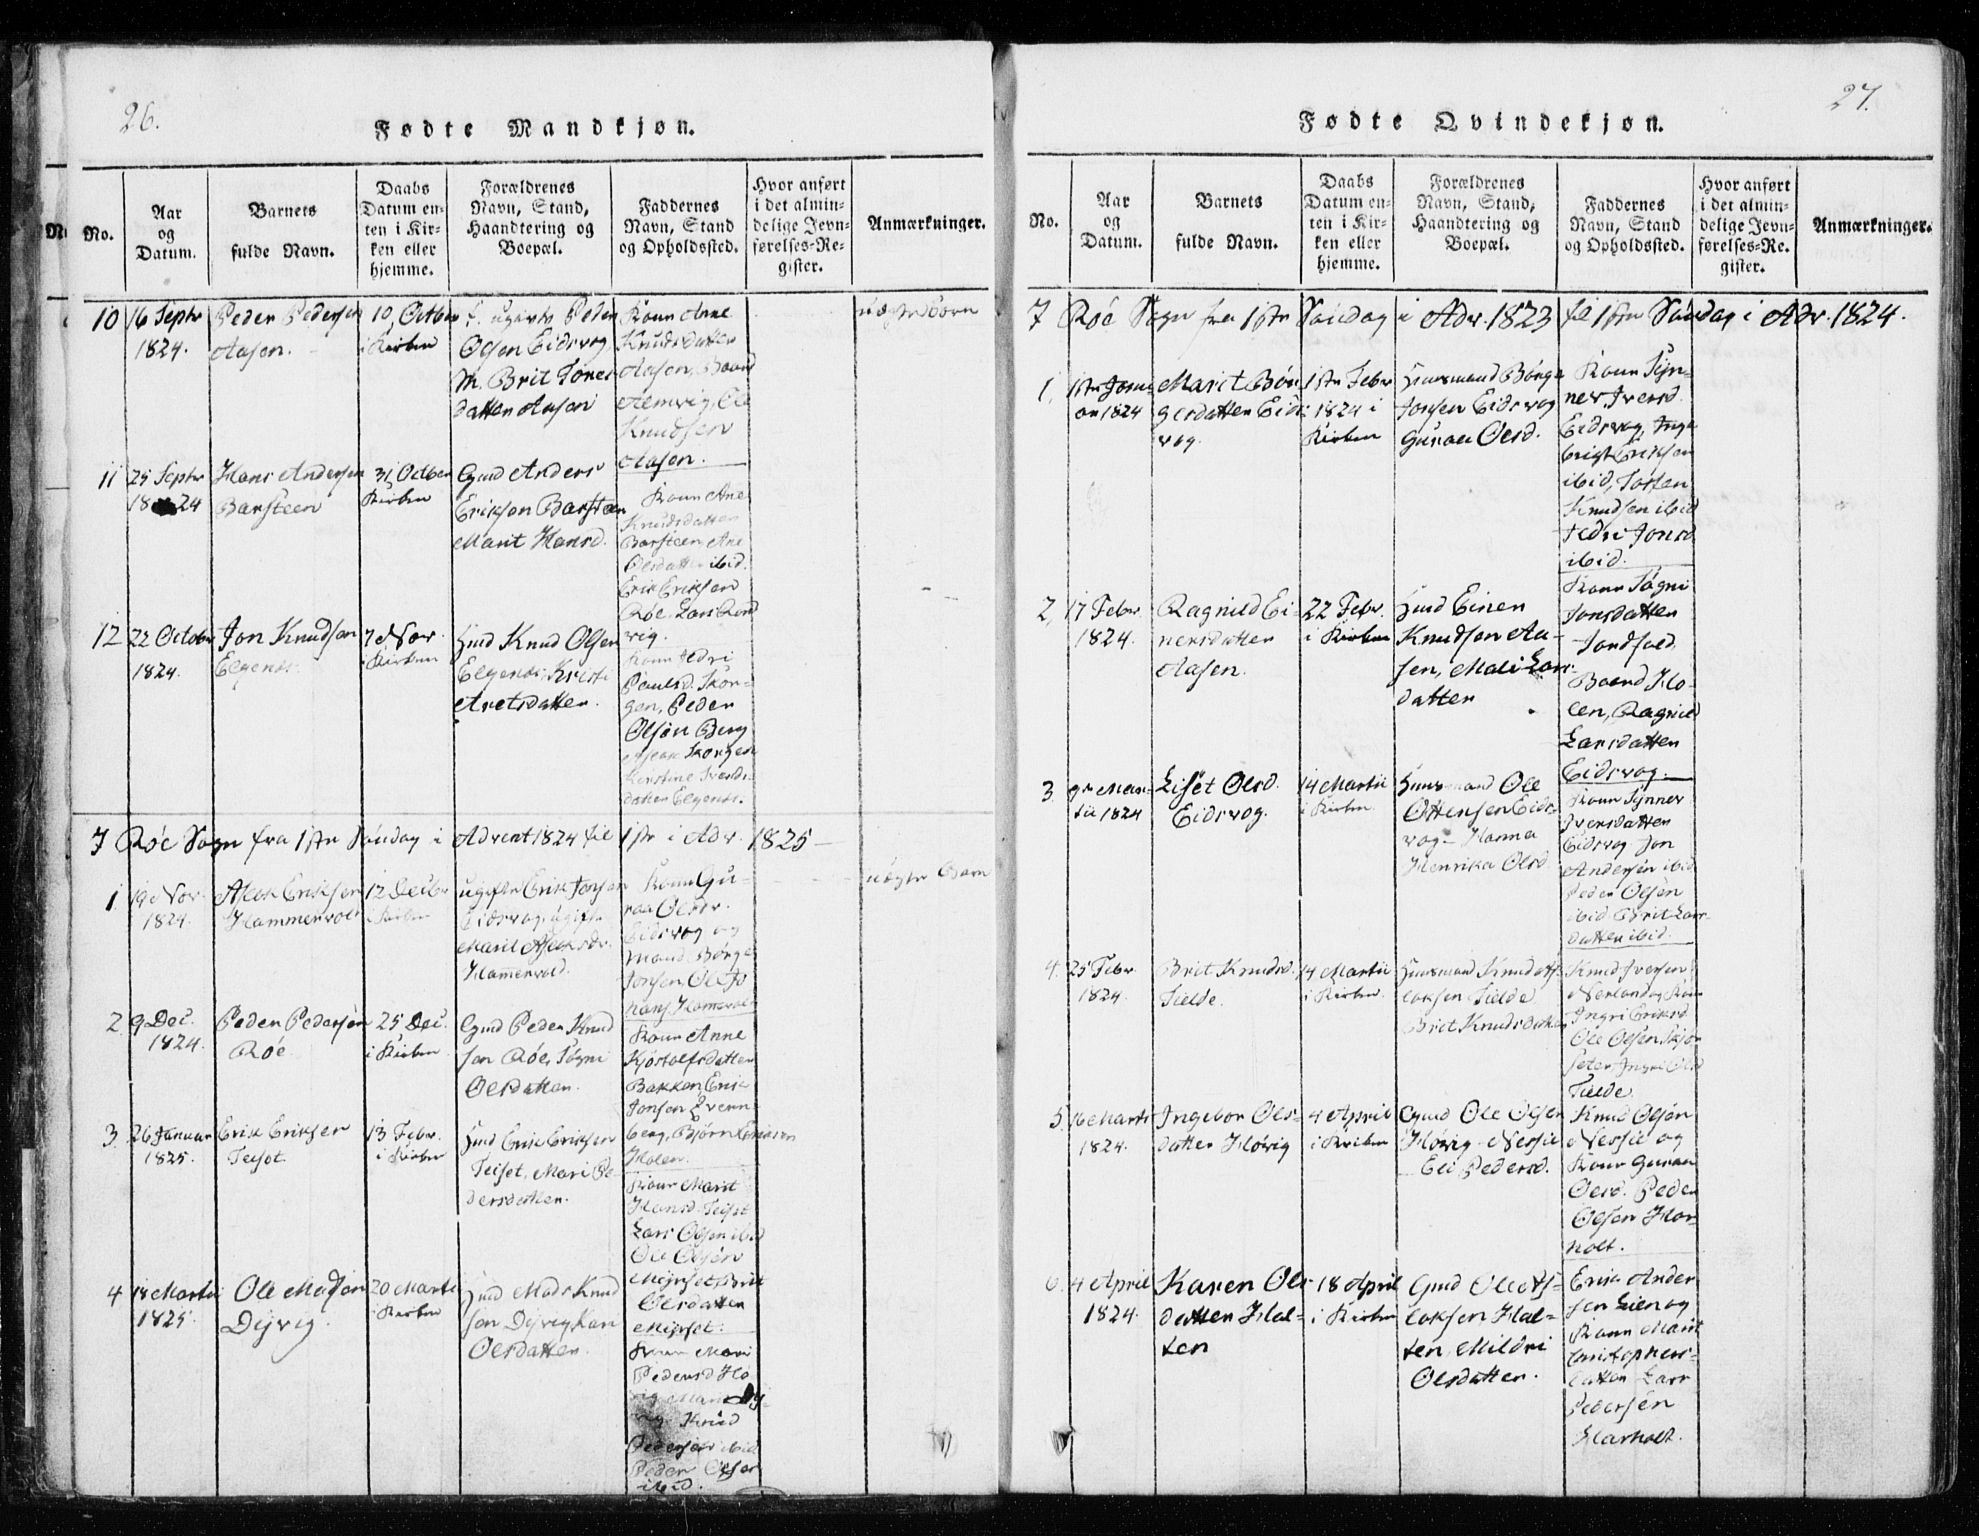 26.
Fødte Mandkjøn.
No.
Aar og Datum.
Barnets fulde Navn.
Daabs Datum enten i Kirken eller hjemme.
Forældrenes Navn, Stand, Haandtering og Boepæl.
Faddernes Navn, Stand og Opholdssted.
Hvor anført i det almindelige Jevnførelses-Register.
Anmærkninger.
10
16 Septr
1824.
Peder Pedersen
Aasen.
10 Octber
i Kirken
ugivte Peder
Olsen Eidsvog
M. Brit Tores
datter Aasen
Kone Ane
Knudsdatter
Aasen, Baard
Ole
Knudsen
Aasen.
uægte Barn
11
25 Septr
1824
Hans Andersen
Barsteen
31 Octber
Kirken
Gmd Anders
Eriksen Barsteen
Marit Hansd.
Kone Ane
Knudsdatter
Barsteen, Ane
Olesdatter ibid.
Erik Eriksen
Røe. Lars
vig.
12
22 October
1824.
Jon Knudsen
Elgenes.
7 Novr.
i Kirken
Hmd Knud Olsen
Elgenes, Kristi
Aretsdatter.
Kone Sedri
Paulsd. Skor-
gen, Peder
Olsøn Berg
Skorgen
Kirstine Iversds
datter Elgenes.
7 Røe Sogn fra 1ste Søndag i Advent 1824 til 1ste i Adv. 1825
1
19 Nov.
1824.
Aslak Eriksen
Hammervold
12 Decbr
i Kirken
ugifte Erik Jonsen
Eidsvog, ugift
Marit Aslaksdr.
Hamervold.
Kone Gu-
roa Olsdr.
Eidsvog og
Mand Børge
Jonsen, Ole Jo
hans. Hamervold
uægte Barn
2
9 Dec.
1824.
Peder Pedersøn
Røe
25 Dec.
i Kirken
Gmd Peder Knud
sen Røe, Søgni
Olesdatter.
Kone Anne
Kjøstolfsdatter
Bakken, Erik
Jonsen Evenn
berg, Bjørn Eriksen
Holen.
3
26 Januar
1825.
Erik Eriksen
Teiset
13 Febr.
i Kirken
Hmd Erik Eriksen
Teiset, Mari Pe
dersdatter.
Kone Marit
Hansd. Teiset
Lars Olsen ibid
Ole Olsøn
Mejset, Brit
Olesdatter
Mejset.
4
18 Martii
1825
Ole Madsøn
Dyvig.
20 Martii
i Kirken
Hmd Mads Knud
sen Dyvig, Kari
Olesdatter.
Kone Mari
Pedersd Hø
vig
Knud
Pedersen ibid
Peder Olsen
ibid.
27.
Fødte Qvindekjøn.
No.
Aar og Datum.
Barnets fulde Navn.
Daabs Datum enten i Kirken eller hjemme.
Forældrenes Navn, Stand, Haandtering og Boepæl.
Faddernes Navn, Stand og Opholdssted.
Hvor anført i det almindelige Jevnførelses-Register.
Anmærkninger.
7 Røe Sogn fra 1ste Søndag i Adv. 1823 til 1ste Søndag i Adv. 1824.
1.
1ste Janu
ar 1824
Marit Bør-
gesdatter Eids
vog.
1ste Febr
1824 i
Kirken
Huusmand Børge
Jonsen Eidsvog
Guroa Olesd.
Kone Syn-
nev Iversd.
Eidsvog, Inge
brigt Eriksen
ibid, Tosten
Knudsen ibid
Sedri Jonsd
ibid.
2.
17 Febr
1824.
Ragnild Ei-
nersdatter
Aasen.
22 Febr.
i Kirken
Hmd Einer
Knudsen Aa-
sen, Mali Lars
datter
Kone Søgni
Jonsdatter
Baard Ho-
len, Ragnild
Larsdatter
Eidsvog.
3.
9de Mar-
tii 1824
Liset Olesd.
Eidsvog.
14 Martii
i Kirken
Huusmand Ole
Ottensen Eids-
vog - Hanna
Henrika Olesd
Kone Synnev
Iversdatter
Eidsvog Jon
Andersen ibid
Peder Olsen
ibid Brit Lars-
datter ibid.
4.
25 Febr
1824.
Brit Knudsd.
Tielde.
14 Martii
i Kirken.
Huusmand Knud As-
laksen Tielde
Brit Knudsdatter
Knud Iversen
Nerland og Kone
Ingri Eriksd
Ole Olsen Skjør
seter Ingri Olsd
Tielde.
5.
16 Marti
1824.
Ingebor Oles-
datter Høvig
4 April
i Kirken
Gmd Ole Olsen
Høvig
Eli Pedersd.
Knud Olsøn
og
Kone Guroa
Olesd. Peder
Olsen Har-
holt.
6.
4 April
1824.
Karen Oles
datter Hal-
ten
18 April
i Kirken
Gmd Ole As-
laksen Hal-
ten, Mildri
Olesdatter.
Erik Ander
sen Lien og
Kone Marit
Cristophers-
datter Lars
Pedersen
Harholt.